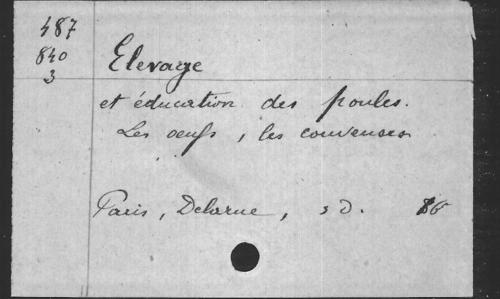 487
840
3
Elevage
et éducation des poules.
Les oeufs, les couveuses
Paris, Delarue, s D.